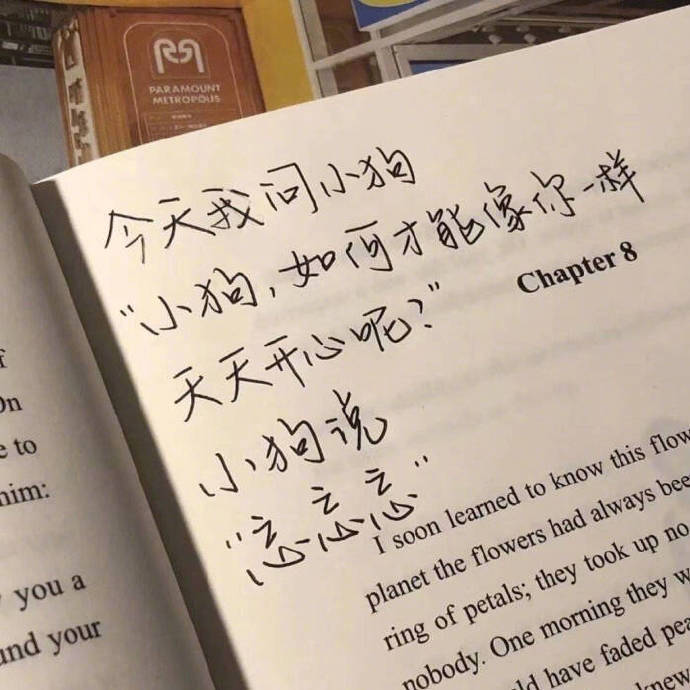 PARAMOUNT
METROPOLIS
今天我问小狗
“小狗,如何才能像你一样
天天开心呢?”
小狗说
“忘忘忘”
On
e to
him:
you a
und your
Chapter 8
I soon learned to know this flow
planet the flowers had always bee
ring of petals; they took up no
nobody. One morning they w
ld have faded pea
knew